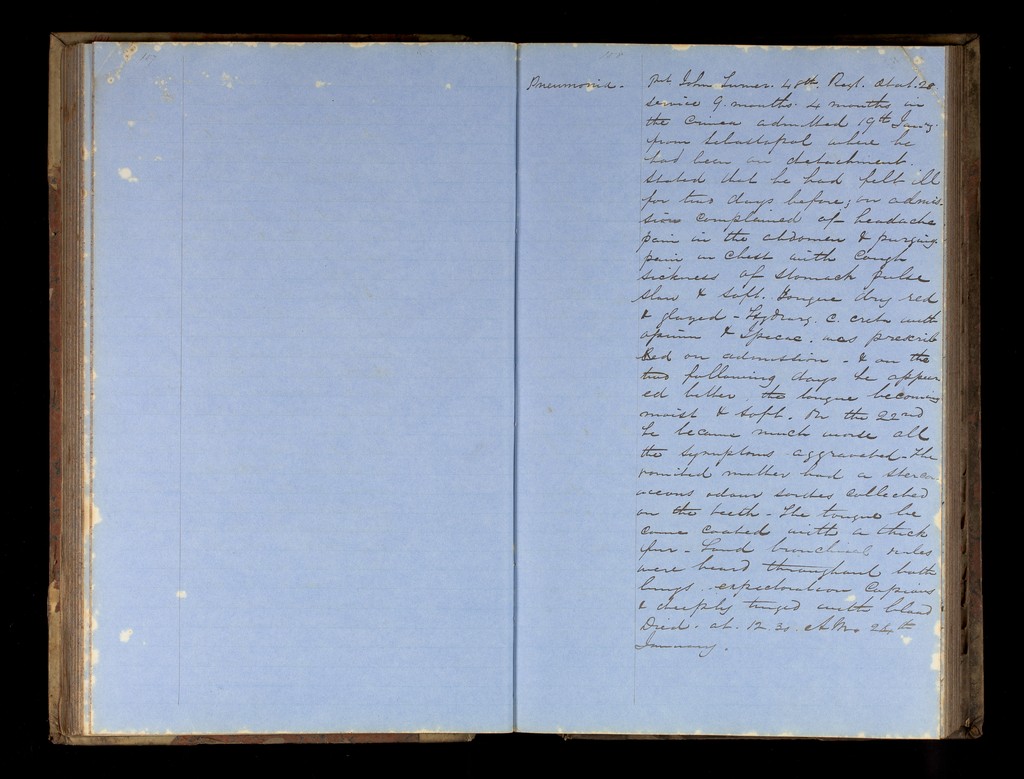 107
108
Pneumonia -
Pvt. John Turner. 48th. Regt. Aetat. 28
service 9. months. 4 months in
the Crimea admitted 19th Jany.
from Sebastopol where he
had been on detachment.
Stated that he had felt ill
for two days before; on admis-
sion complained of headache
pain in the abdomen & purging
pain in chest with cough
sickness of stomach pulse
slow & soft. Tongue dry red
& glazed - Hydrarg. c. creta with
opium & Ipecac. was prescrib
bed on admission - & on the
two following days he appear
ed better, the tongue becoming
moist & soft. On the 22nd
he became much worse all
the symptoms aggravated - The
vomited matter had a sterco
aceous odour sordes collected
on the teeth - The tongue be
came coated with a thick
fur - Loud bronchial rales
were heard throughout both
lungs. expectoration copious
& deeply tinged with blood
Died. at. 12.30. A.M. 24th
January.